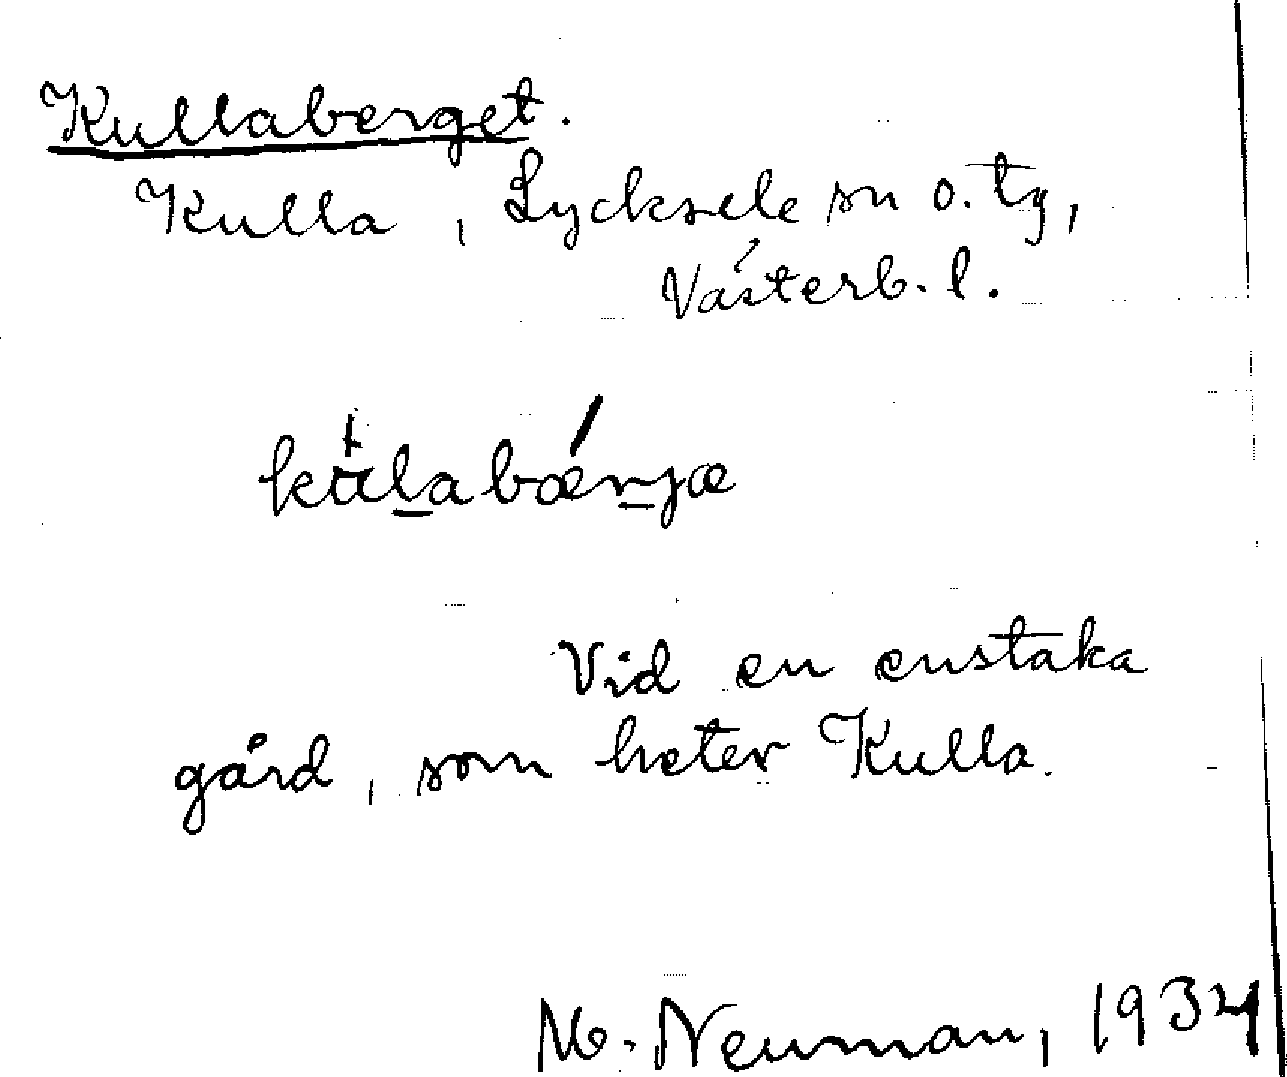 Kullaberget.
Kulla, Lycksele sn o. tg,
Västerb. l.
kulabærjæ
Vid en enstaka
gård, som heter Kulla.
M. Neuman, 1934